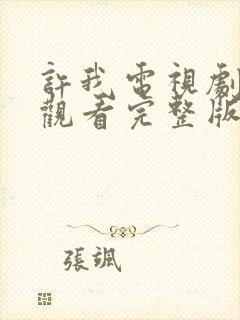 許我電視劇
觀看完整版
張颯